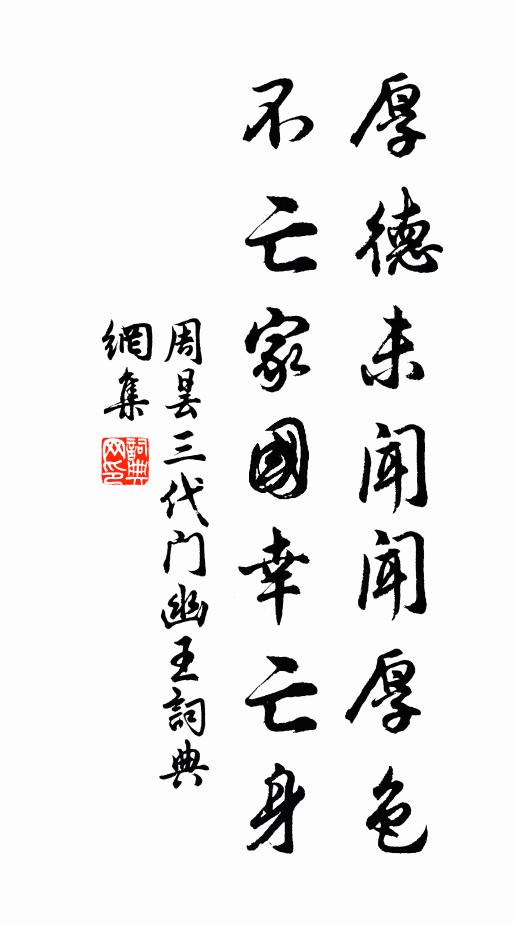 厚德未闻闻厚色
不亡家國幸亡身
周昙三代门幽王詞典
網集
詞典网印